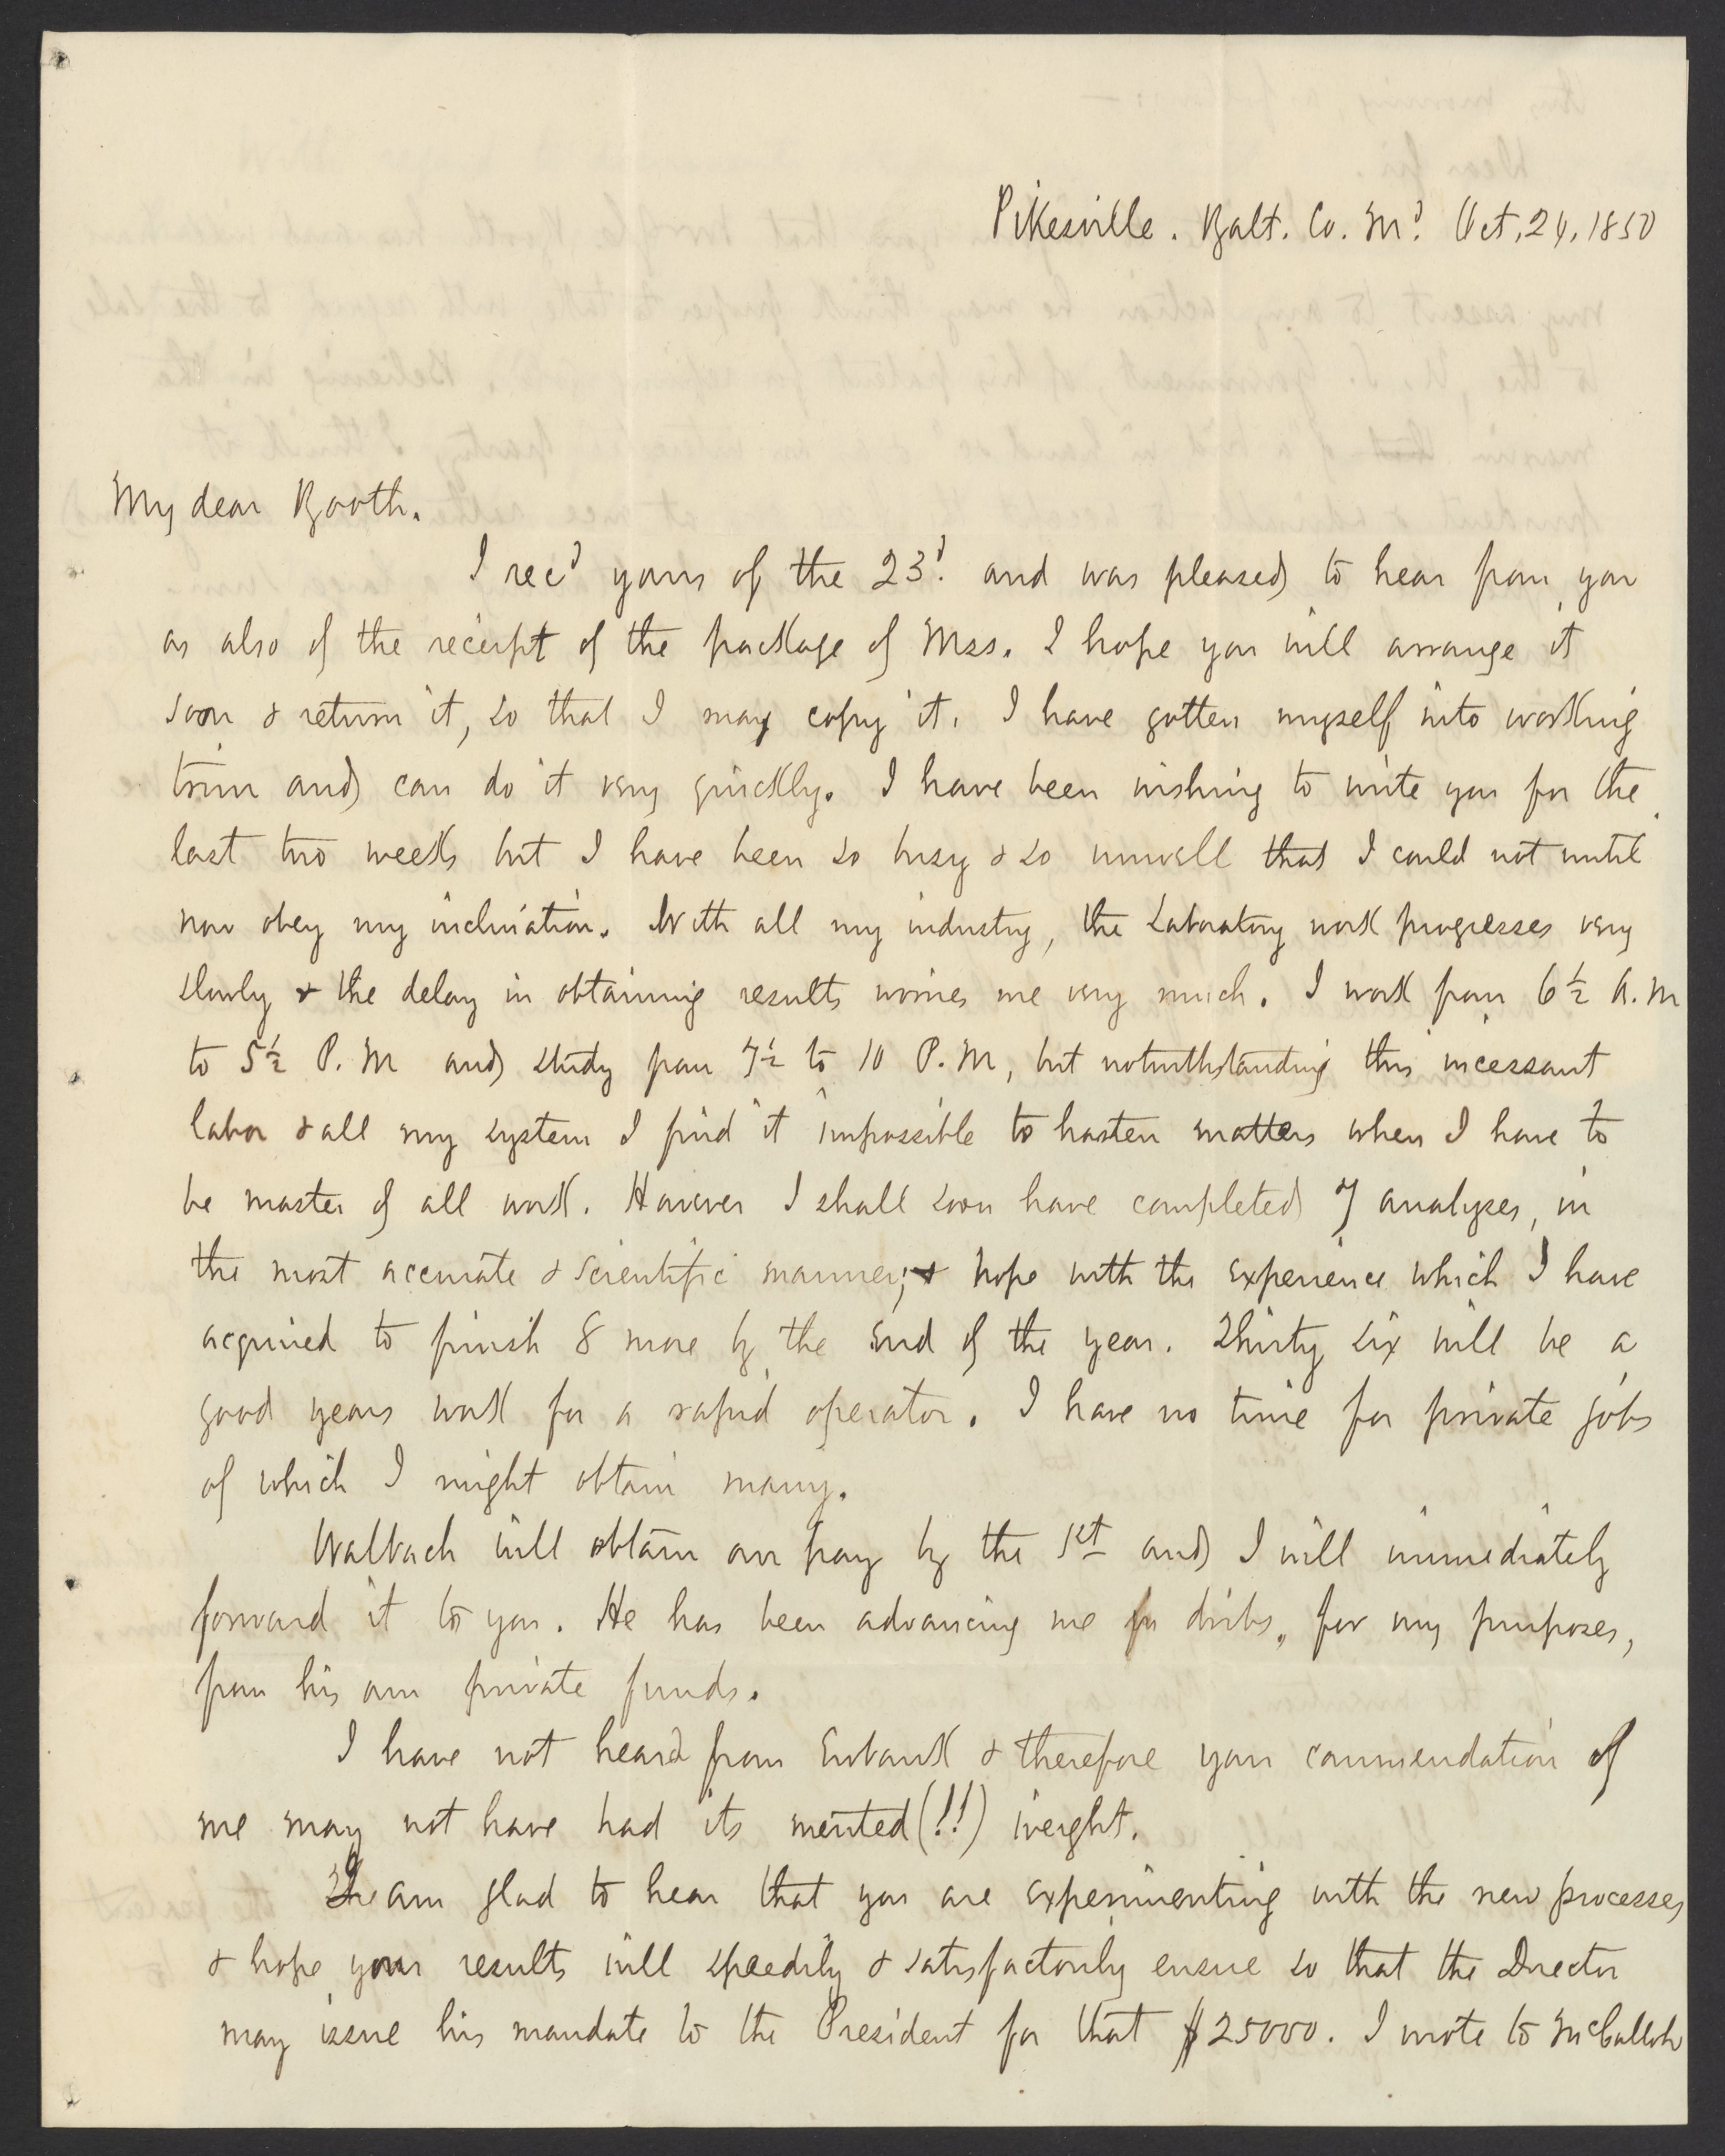 Pikesville. Balt. Co. Md. Oct. 24, 1850
My dear Booth.
I recd yours of the 23d. and was pleased to hear from you
as also of the receipt of the package of Mss. I hope you will arrange it
soon & return it, so that I may copy it. I have gotten myself into working
trim and can do it very quickly. I have been wishing to write you for the
last two weeks but I have been so busy & so unwell that I could not until
now obey my inclination. With all my industry, the Laboratory work progresses very
slowly & the delay in obtaining results worries me very much. I work from 6½ A.M
to 5½ P.M and study from 7½ to 10 P.M, but notwithstanding this incessant
labor & all my system I find it impossible to hasten matters when I have to
be master of all work. However I shall soon have completed 7 analyses, in
the most accurate & scientific manner; & hope with the experience which I have
acquired to finish 8 more by the end of the year. Thirty six will be a
good years work for a rapid operator. I have no time for private jobs
of which I might obtain many.
Walbach will obtain our pay by the 1st and I will immediately
forward it to you. He has been advancing me in dribs, for my purposes,
from his own private funds.
I have not heard from Ewbank & therefore your commendation of
me may not have had its merited (!!) weight.
I am glad to hear that you are experimenting with the new processes
& hope your results will speedily & satisfactorily ensue so that the Director
may issue his mandate to the President for that $25000. I wrote to McCulloh